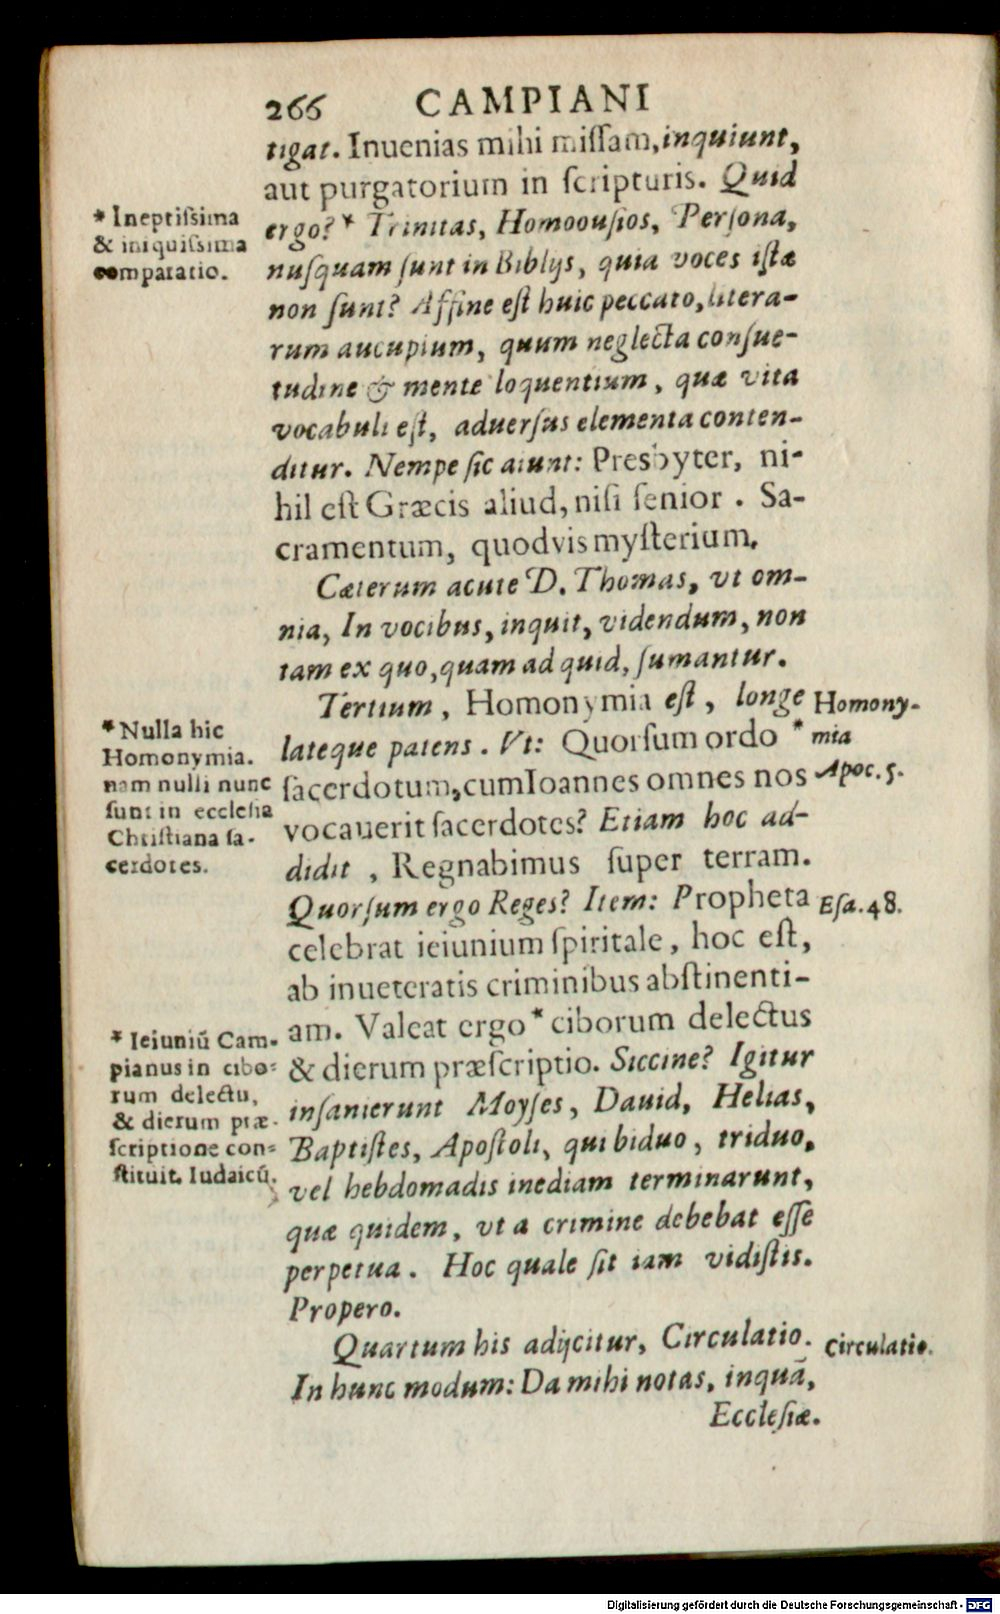 266 CAMPIANI
tigat. Inuenias mihi miſſam, inquiunt,
aut purgatorium in ſcripturis. Quid
ergo? * Trinitas, Homoouſios, Perſona,
nuſquam ſunt in Biblijs, quia voces iſtæ
non ſunt? Affine eſt huic peccato, litera-
rum aucupium, quum neglecta conſue-
tudine & mente loquentium, quæ vita
vocabuli eſt, aduerſus elementa conten-
ditur. Nempe ſic aiunt: Presbyter, ni-
hil eſt Græcis aliud, niſi ſenior. Sa-
cramentum, quodvis myſterium.
Cæterum acute D. Thomas, vt om-
nia, In vocibus, inquit, videndum, non
tam ex quo, quam ad quid, ſumantur.
Tertium, Homonymia eſt, longe
lateque patens. Vt: Quorſum ordo *
ſacerdotum, cum Ioannes omnes nos
vocauerit ſacerdotes? Etiam hoc ad-
didit, Regnabimus ſuper terram.
Quorſum ergo Reges? Item: Propheta
celebrat ieiunium ſpiritale, hoc eſt,
ab inueteratis criminibus abſtinenti-
am. Valeat ergo * ciborum delectus
& dierum præſcriptio. Siccine? Igitur
inſanierunt Moyſes, Dauid, Helias,
Baptiſtes, Apoſtoli, qui biduo, triduo,
vel hebdomadis inediam terminarunt,
quæ quidem, vt a crimine debebat eſſe
perpetua. Hoc quale ſit iam vidiſtis.
Propero.
Quartum his adijcitur, Circulatio.
In hunc modum: Da mihi notas, inquā,
Eccleſiæ.
* Ineptiſsima
& iniquiſsima
comparatio.
* Nulla hic
Homonymia.
nam nulli nunc
ſunt in eccleſia
Chriſtiana ſa-
cerdotes.
* Ieiuniū Cam-
pianus in cibo-
rum delectu,
& dierum præ-
ſcriptione con-
ſtituit. Iudaicū.
Homony-
mia
Apoc. 5.
Eſa. 48.
Circulatio.
Digitalisierung gefördert durch die Deutsche Forschungsgemeinschaft - DFG